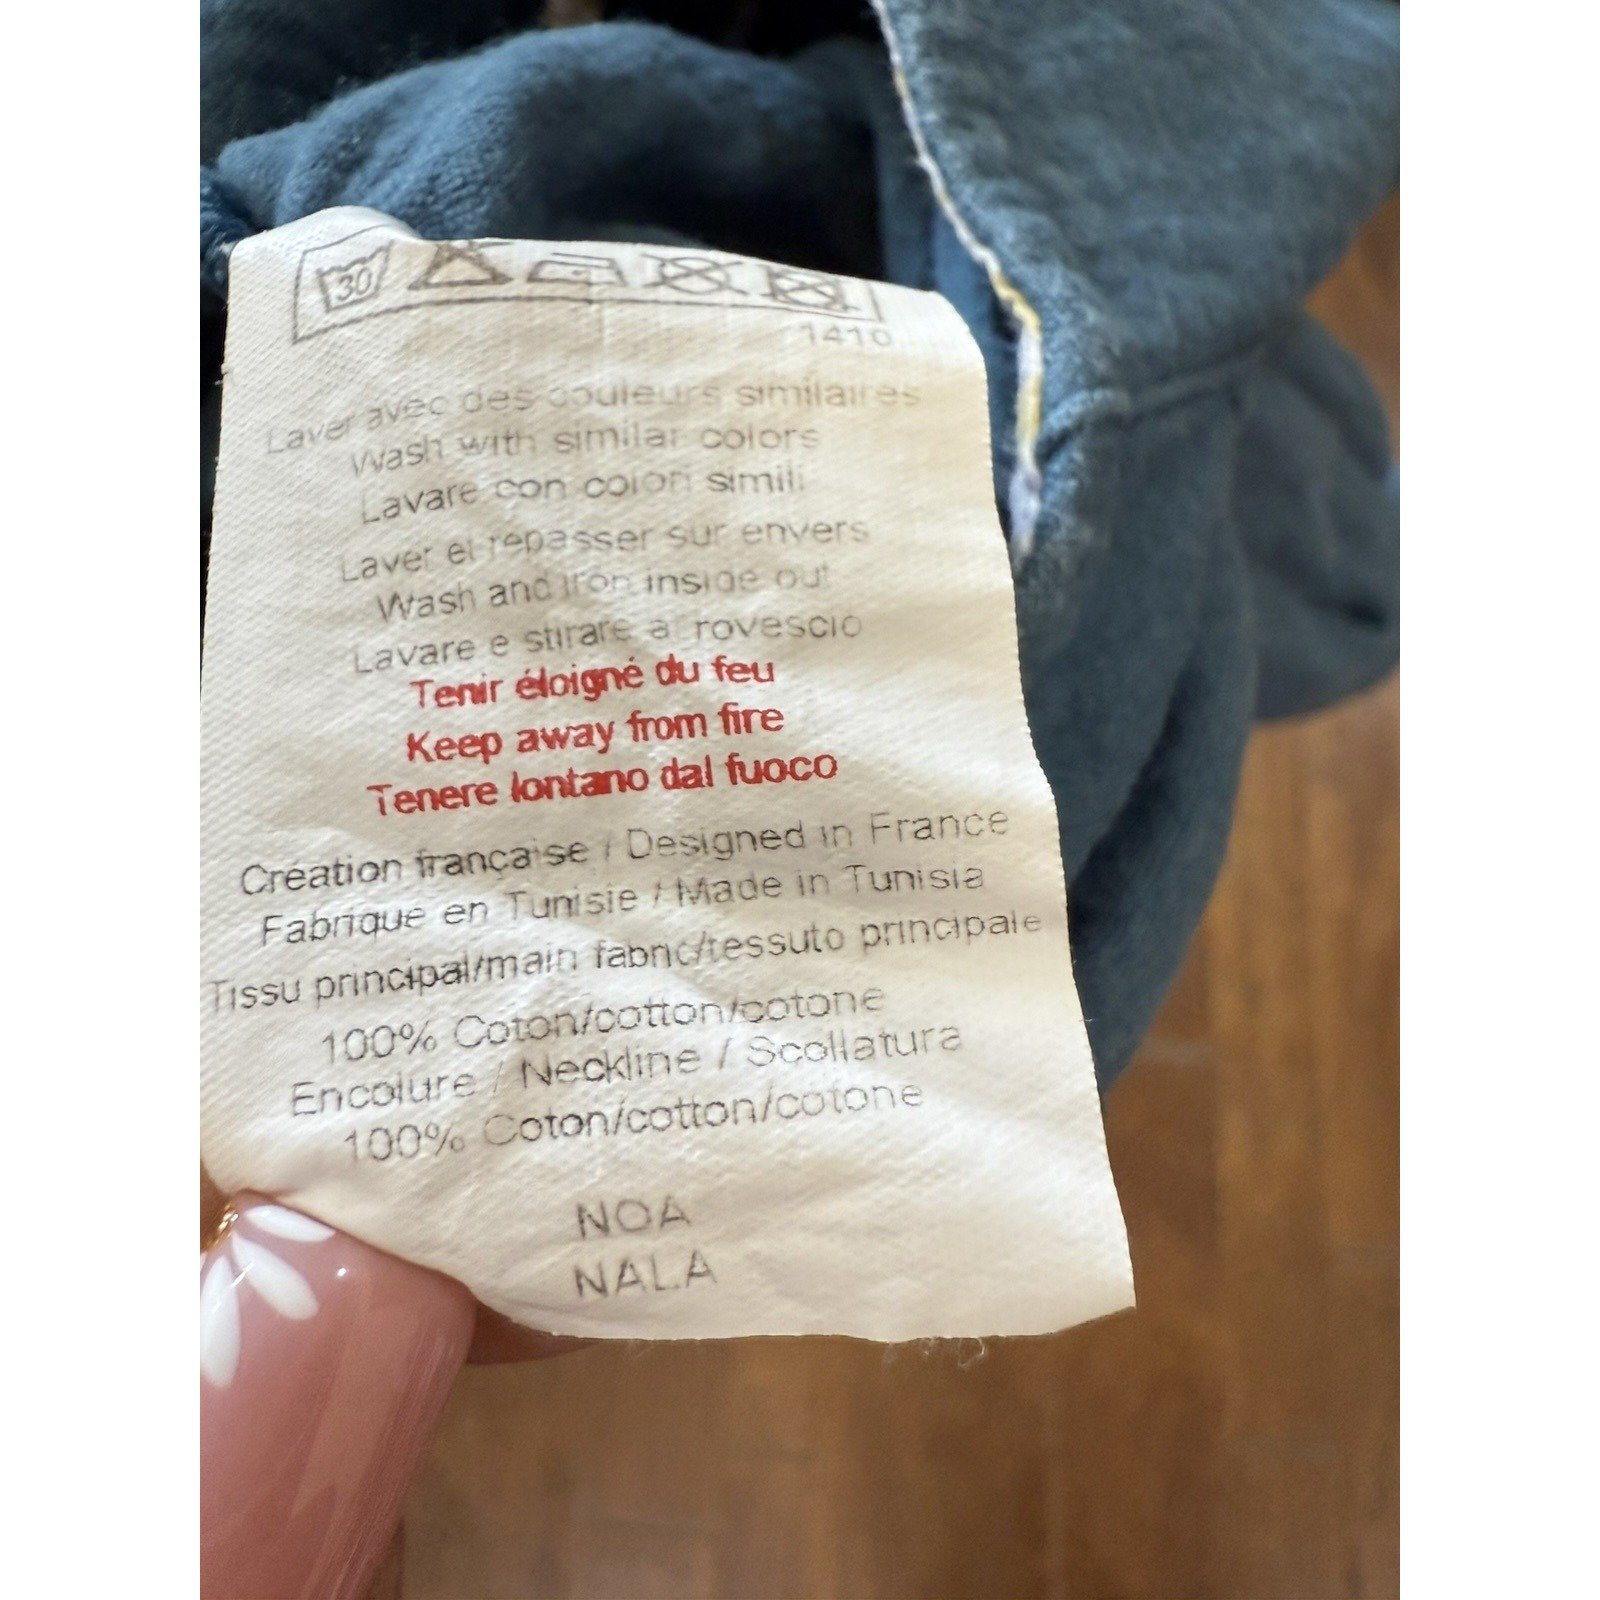 30
1410
Laver avec des couleurs similaires
Wash with similar colors
Lavare con colori simili
Laver et repasser sur envers
Wash and iron inside out
Lavare e stirare a rovescio
Tenir éloigné du feu
Keep away from fire
Tenere lontano dal fuoco
Création française / Designed in France
Fabrique en Tunisie / Made in Tunisia
Tissu principal/main fabric/tessuto principale
100% Coton/cotton/cotone
Encolure / Neckline / Scollatura
100% Coton/cotton/cotone
NOA
NALA